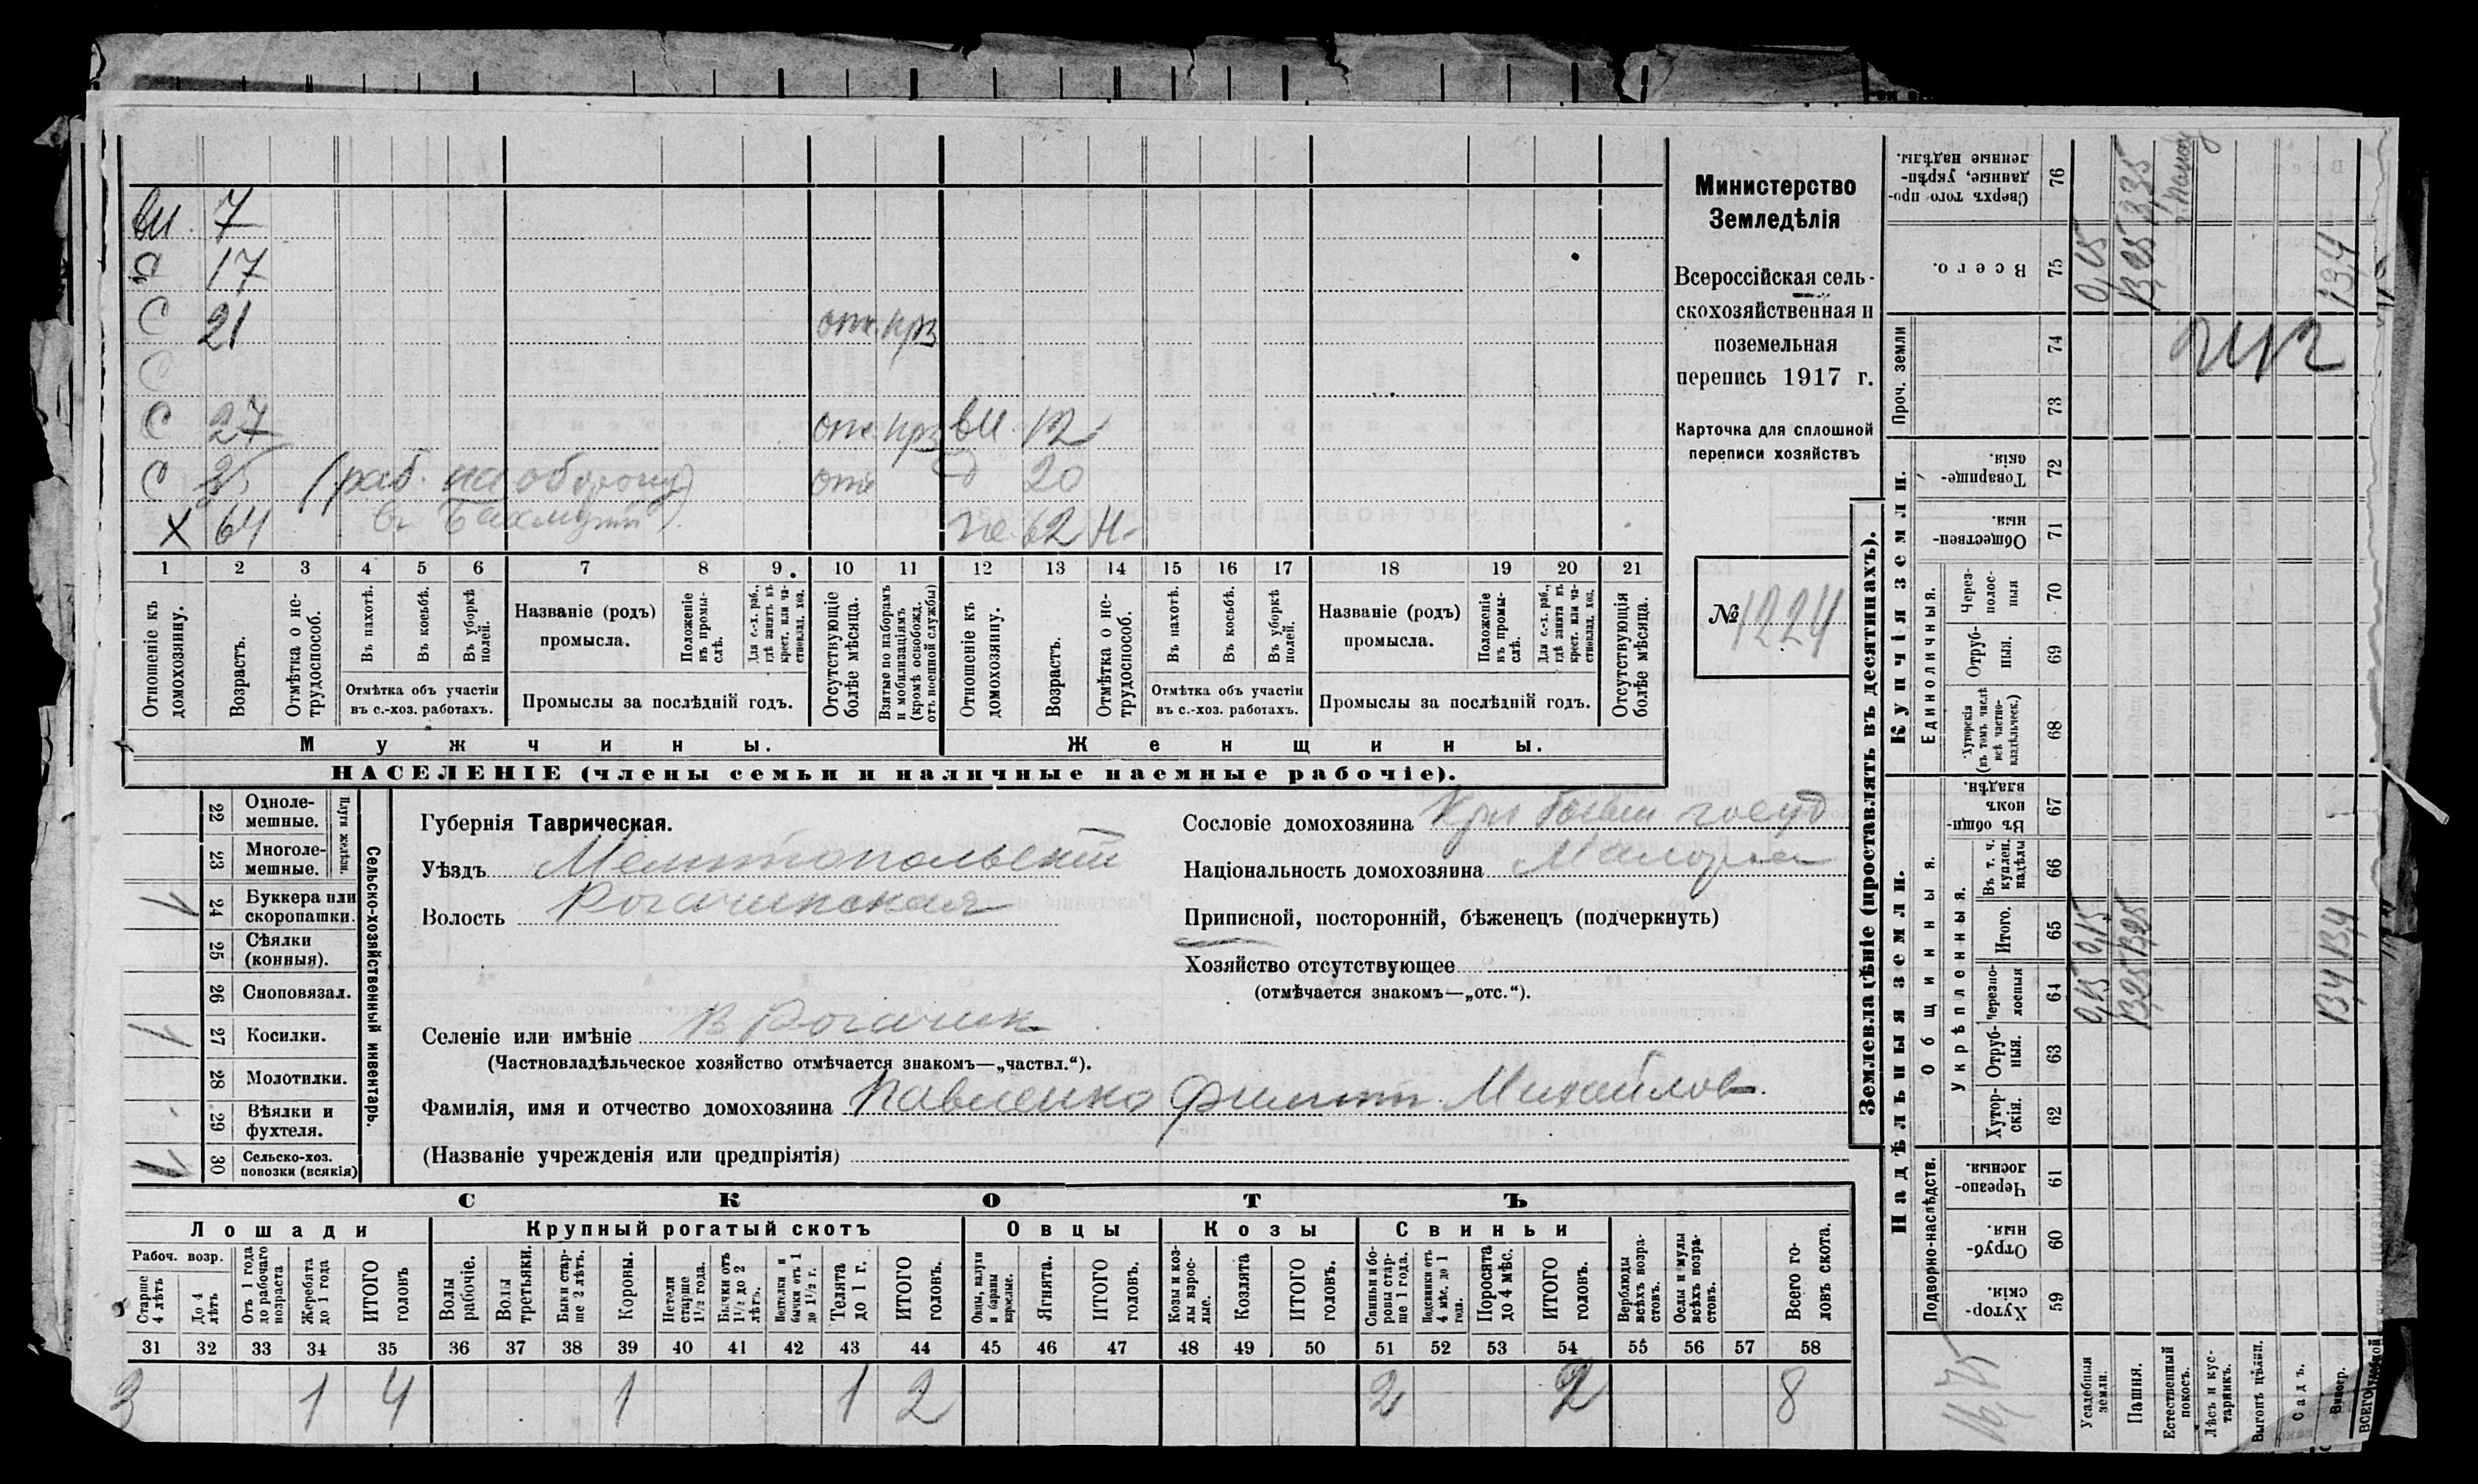 вн 7
С 17
С 21 отс. прз
С
С 27 отс. прз вн 12
С 35 (раб. на оборону) отс д 20
Х 64 в Бахмути ж 62 н
1 2 3 4 5 6 7 8 9 10 11 12 13 14 15 16 17 18 19 20 21
Отношеніе къ домохозяину.
Возрастъ.
Отмѣтка о нетрудоспособ.
Въ пахотѣ.
Въ косьбѣ.
Въ уборкѣ полей.
Отмѣтка объ участіи
въ с.-хоз. работахъ.
Названіе (родъ)
промысла.
Положеніе въ промыслѣ.
Для с.-х. раб., гдѣ занятъ въ крест. или частновлад. хоз.
Промыслы за послѣдній годъ.
Отсутствующіе болѣе мѣсяца.
Взятые по наборамъ и мобилизаціямъ (кромѣ освобожд. отъ военной службы)
Отношеніе къ домохозяину.
Возрастъ.
Отмѣтка о нетрудоспособ.
Въ пахотѣ.
Въ косьбѣ.
Въ уборкѣ полей.
Отмѣтка объ участіи
въ с.-хоз. работахъ.
Названіе (родъ)
промысла.
Положеніе въ промыслѣ.
Для с.-х. раб., гдѣ занята въ крест. или частновлад. хоз.
Промыслы за послѣдній годъ.
Отсутствующія болѣе мѣсяца.
Мужчины.
Женщины.
НАСЕЛЕНІЕ (члены семьи и наличные наемные рабочіе).
Министерство
Земледѣлія
Всероссійская сель-
скохозяйственная и
поземельная
перепись 1917 г.
Карточка для сплошной
переписи хозяйствъ
№ 1224
22 Одноле-
мешные.
23 Многоле-
мешные.
Плуги желѣзн.
24 Буккера или
скоропашки.
25 Сѣялки
(конныя).
26 Сноповязал.
27 Косилки.
28 Молотилки.
29 Вѣялки и
фухтеля.
30 Сельско-хоз.
повозки (всякія)
Сельско-хозяйственный инвентарь.
Губернія Таврическая.
Уѣздъ Мелитопольскій
Волость Рогачикская
Сословіе домохозяина Крн бывш госуд
Національность домохозяина Малорос
Приписной, посторонній, бѣженецъ (подчеркнуть)
Хозяйство отсутствующее
(отмѣчается знакомъ—„отс.“).
Селеніе или имѣніе В Рогачик
(Частновладѣльческое хозяйство отмѣчается знакомъ—„частвл.“).
Фамилія, имя и отчество домохозяина Павленко Филипп Михайлов.
(Названіе учрежденія или предпріятія)
СКОТЪ
Лошади
Крупный рогатый скотъ
Овцы
Козы
Свиньи
Рабоч. возр.
Старше 4 лѣтъ
До 4 лѣтъ
Отъ 1 года до рабочаго возраста
Жеребята до 1 года
ИТОГО головъ
Волы рабочіе.
Волы третьяки.
Быки старше 2 лѣтъ.
Коровы.
Нетели старше 1½ года.
Бычки отъ 1½ до 2 лѣтъ.
Нетелки и бычки отъ 1 до 1½ г.
Телята до 1 г.
ИТОГО головъ.
Овцы, валухи и бараны взрослые.
Ягнята.
ИТОГО головъ.
Козы и козлы взрослые.
Козлята
ИТОГО головъ.
Свиньи и боровы старше 1 года.
Подсвинки отъ 4 мѣс. до 1 года.
Поросята до 4 мѣс.
ИТОГО головъ.
Верблюды всѣхъ возрастовъ.
Ослы и мулы всѣхъ возрастовъ.
Всего головъ скота.
31 32 33 34 35 36 37 38 39 40 41 42 43 44 45 46 47 48 49 50 51 52 53 54 55 56 57 58
3 1 4 1 1 2 2 2 8
Землевладѣніе (проставлять въ десятинахъ).
Надѣльныя земли.
Купчія земли.
Проч. земли
Подворно-наслѣдств.
Общинныя.
Укрѣпленныя.
Единоличныя.
Хуторскія. 59
Отрубныя. 60
Черезполосныя. 61
Хуторскія. 62
Отрубныя. 63
Черезполосныя 64
Итого. 65
Въ т. ч. куплен. надѣлы 66
Въ общинномъ владѣн. 67
Хуторскія (въ томъ числѣ всѣ частновладѣльческ.) 68
Отрубныя. 69
Черезполосныя 70
Общественныя. 71
Товарищескія. 72
73
74
Всего. 75
Сверхъ того проданные, укрѣпленные надѣлы. 76
Усадебныя земли. 0,15 0,15 0,15
Пашня. 13,25 13,25 13,25 3,35
Естественный покосъ.
Лѣсъ и кустарникъ.
Выгонъ цѣлин.
Садъ.
Виногр. 13,4 13,4 13,4
16,75